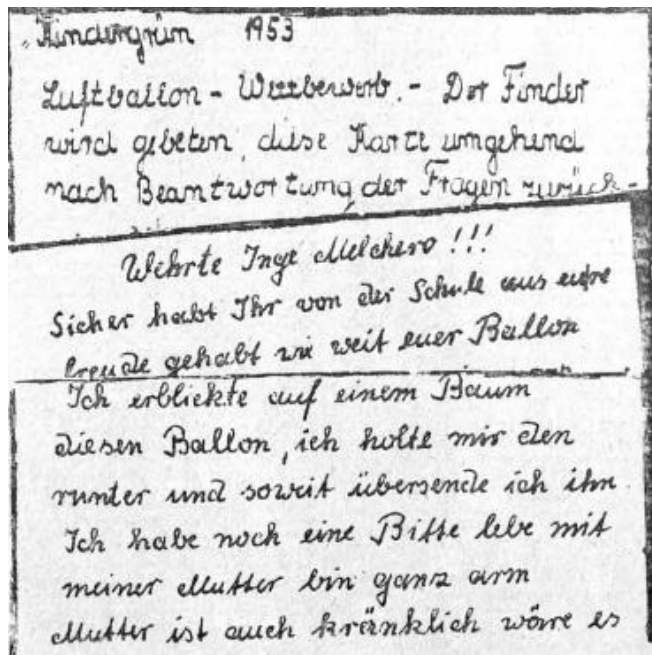 „Kindergrün 1953
Luftballon - Wettbewerb. - Der Finder
wird gebeten, diese Karte umgehend
nach Beantwortung der Fragen zurück-
Wehrte Inge Melchero !!!
Sicher habt Ihr von der Schule aus eure
Freude gehabt wie weit euer Ballon
Ich erblickte auf einem Baum
diesen Ballon, ich holte mir den
runter und soweit übersende ich ihn.
Ich habe noch eine Bitte lebe mit
meiner Mutter bin ganz arm
Mutter ist auch kränklich wäre es